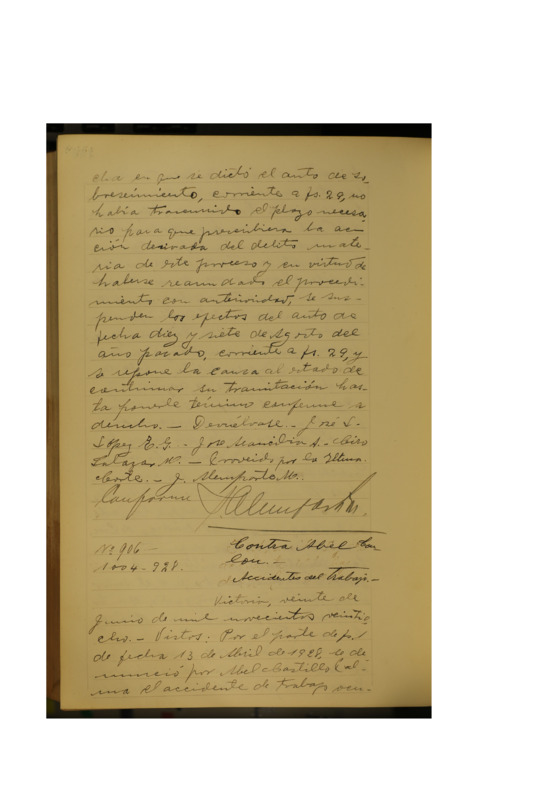 cha en que se dictó el auto de so-
breseimiento, corriente a fs. 29, no
había transcurrido el plazo necesa-
rio para que prescribiera la ac-
ción derivada del delito mate-
ria de este proceso y en virtud de
haberse reanudado el procedi-
miento con anterioridad, se sus-
penden los efectos del auto de
fecha diez y siete de Agosto del
año pasado, corriente a fs. 29, y
se repone la causa al estado de
continuar su tramitación has-
ta ponerle término conforme a
derecho. — Devuélvase. — José S.
López E.G. — José Mancilla A. — Ciro
Salazar M. — Proveído por la Iltma.
Corte. — J. M.
Conforme
Nº 906 —
1004-928.
Contra Abel
Accidentes del Trabajo. —
Victoria, veinte de
Junio de mil novecientos veintio
cho. — Vistos: Por el parte de fs. 1
de fecha 13 de Abril de 1928, se de
nunció por Abel Castillo
el accidente de trabajo ocu-